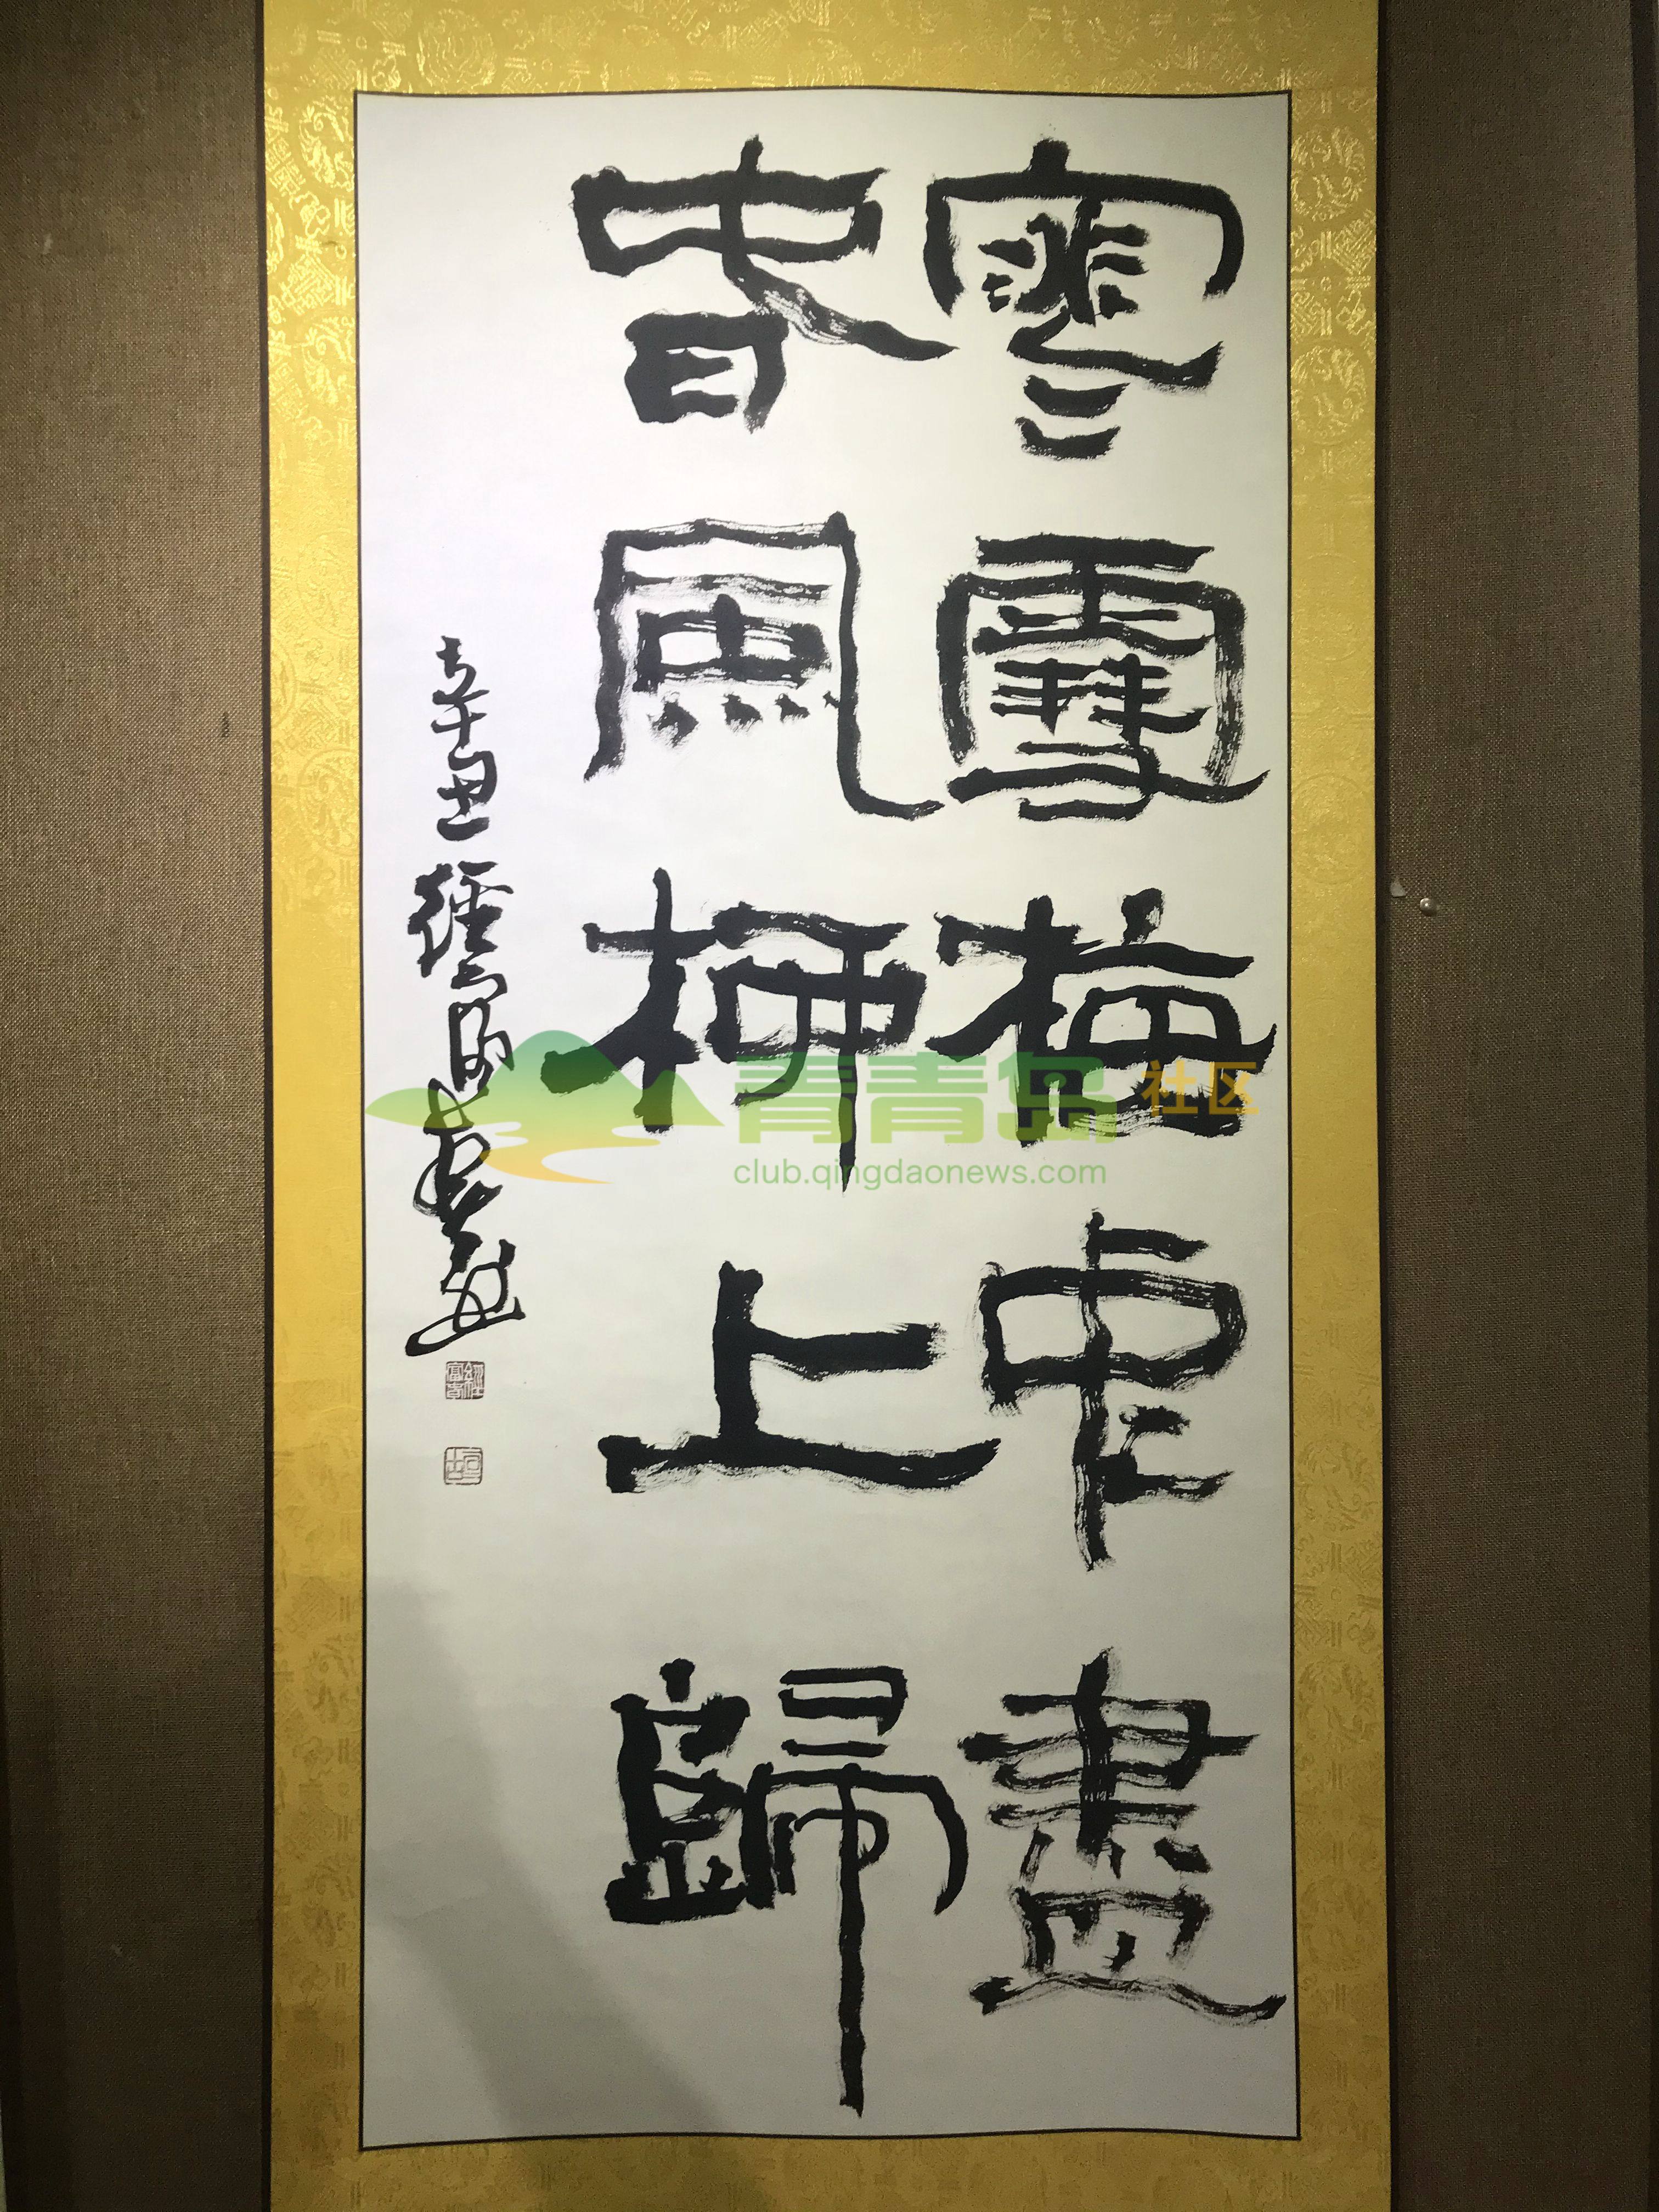 寒雪梅中盡
春風柳上歸
辛丑
青青岛社区
club.qingdaonews.com